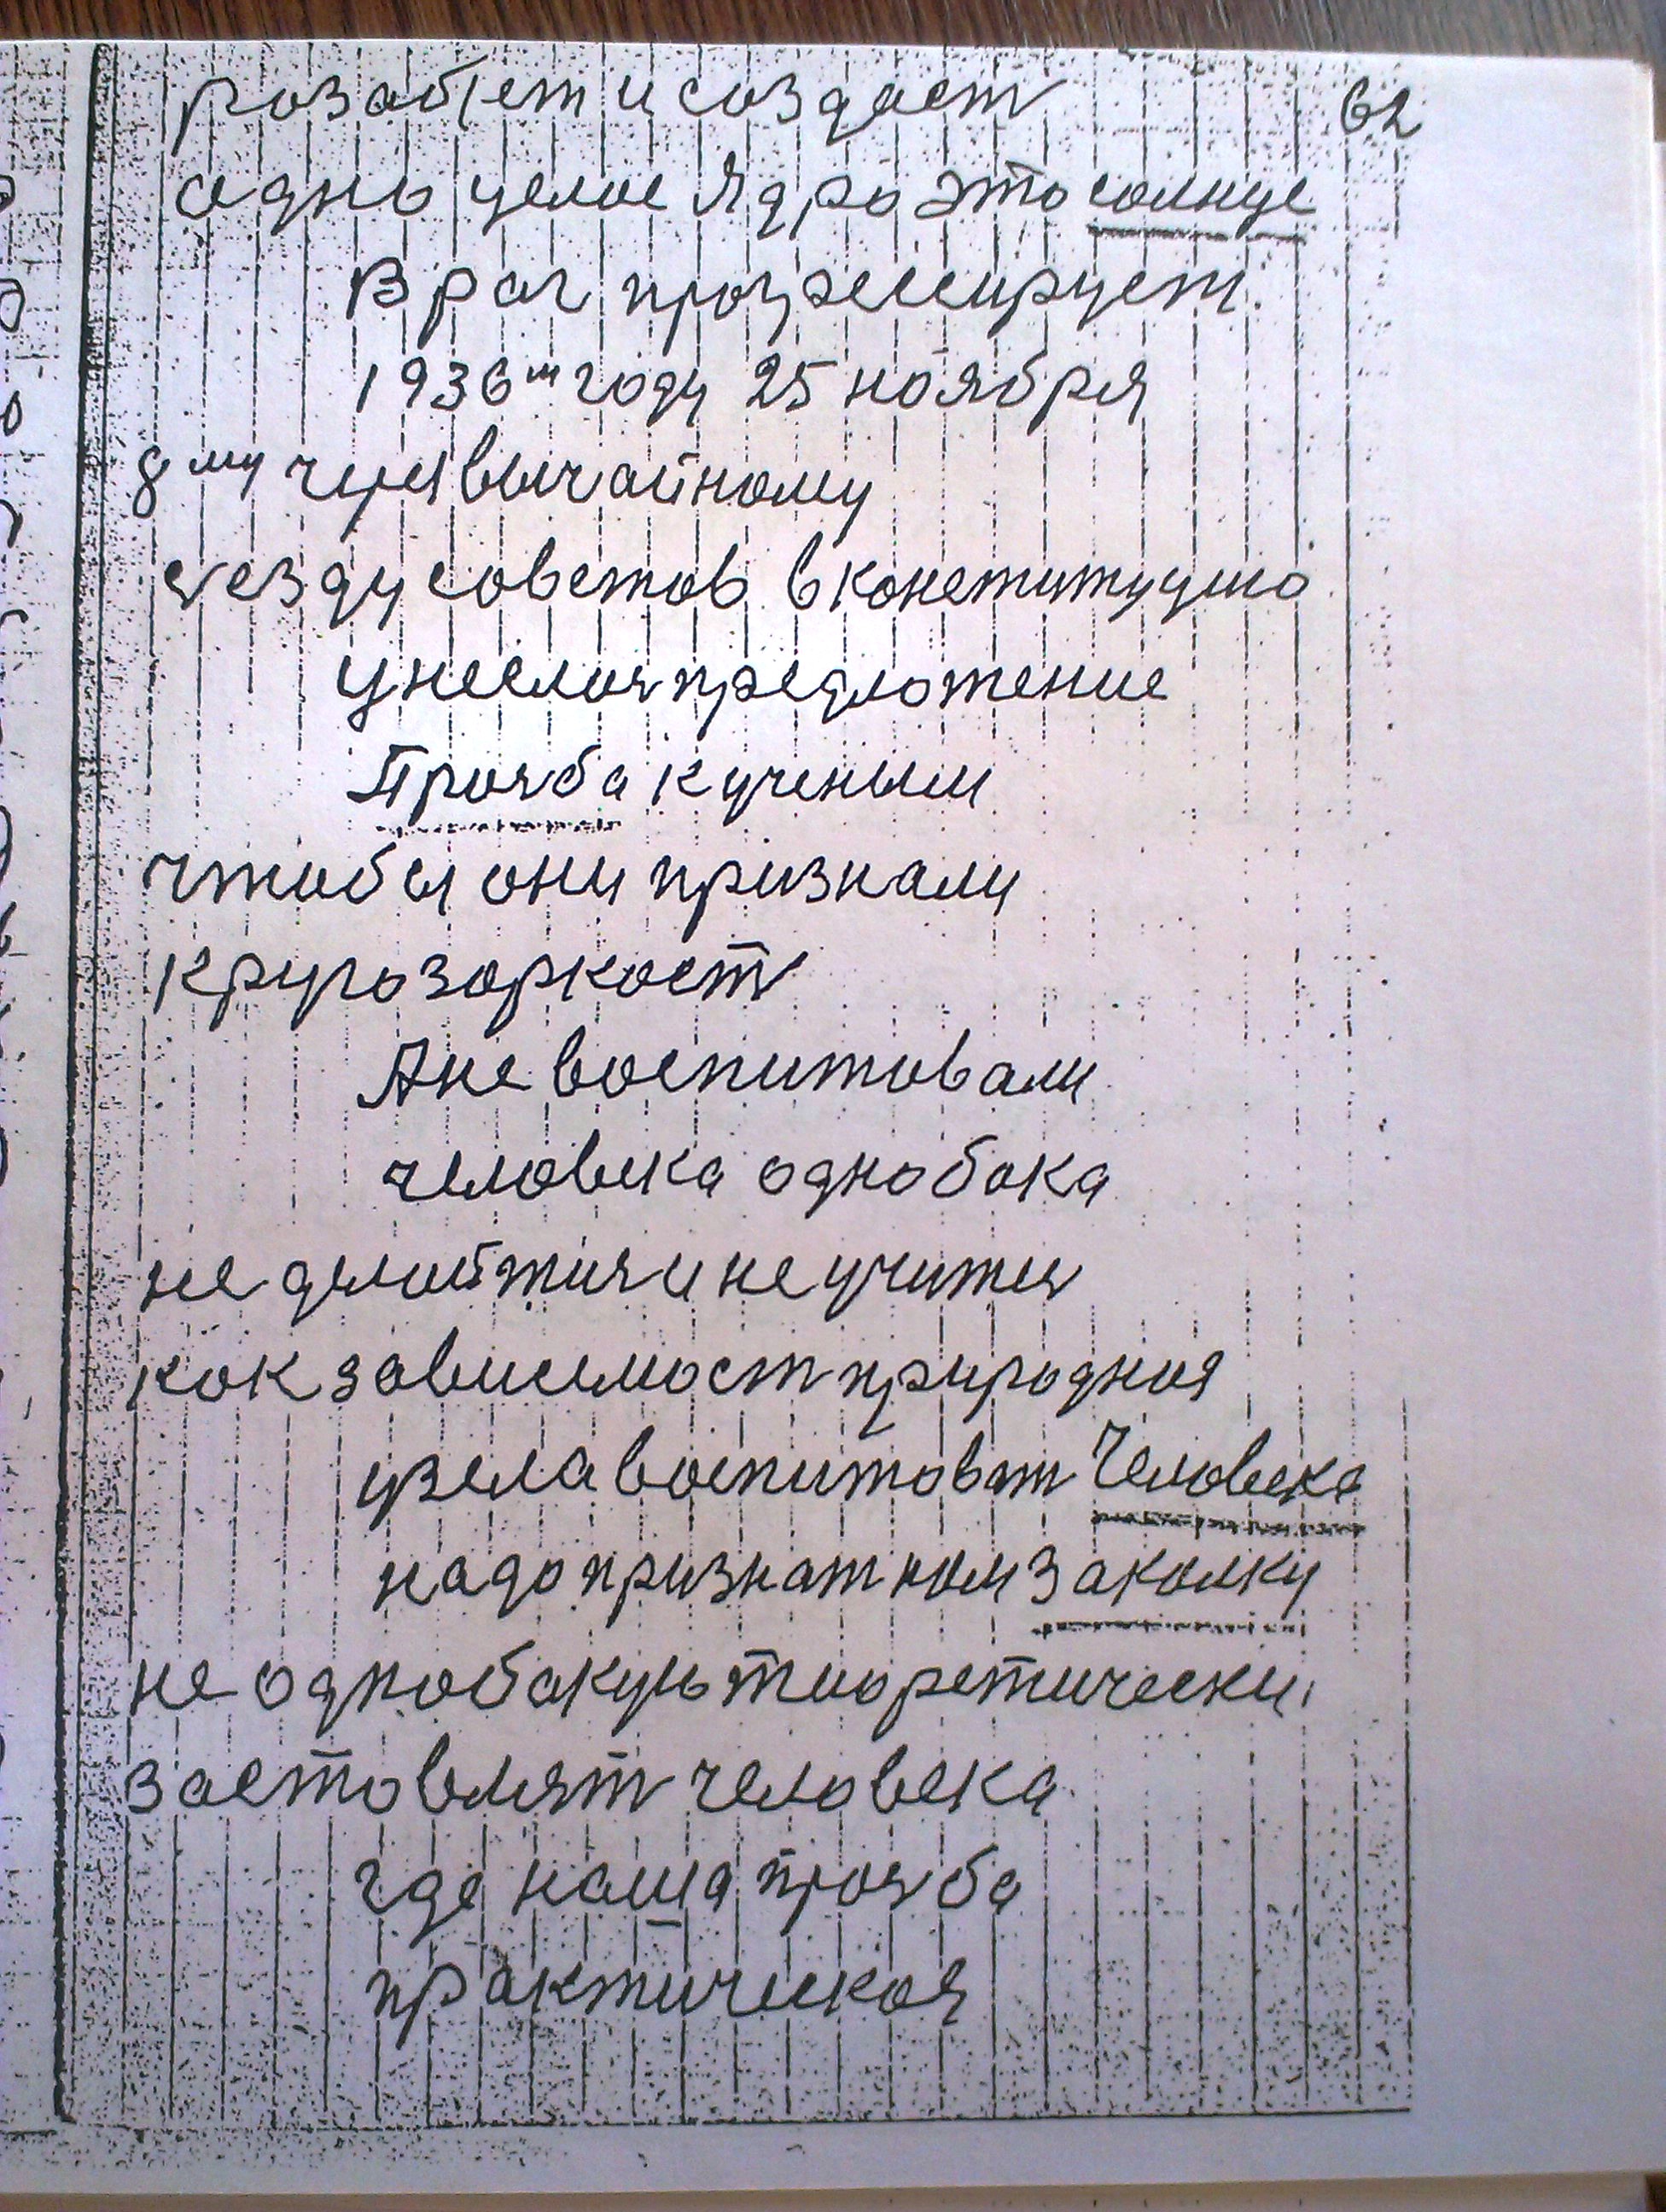 розабет и создаст 62
одно целое Ядро это солнце
Враг прогрессирует.
1936 м году 25 ноября
8 му чризвычайному
сезду советов в конституцию
унеслося предложение
Прозба к ученым
чтобы они признали
кругозоркост
А не воспитовали
человека однобока
не делойтися и не учится
кок зависемост природная
узела воспитоват Человека
надо признат ном Закалку
не однобакую тиоретически,
застовлят человека
где наша прозба
практическоя